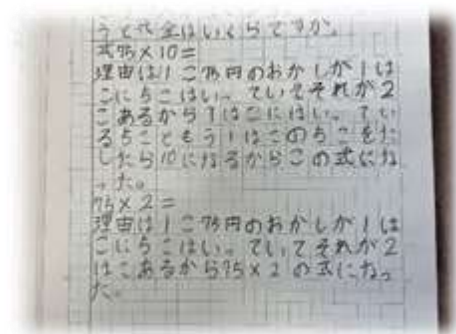 うで代金はいくらですか。
式75×10=
理由は1こ75円のおかしが1は
こに5こはいっていてそれが2
こあるから1はこにはいってい
る5こともう1はこの5こをた
したら10になるからこの式にな
った。
75×2=
理由は1こ75円のおかしが1は
こに5こはいっていてそれが2
はこあるから75×2の式になっ
た。